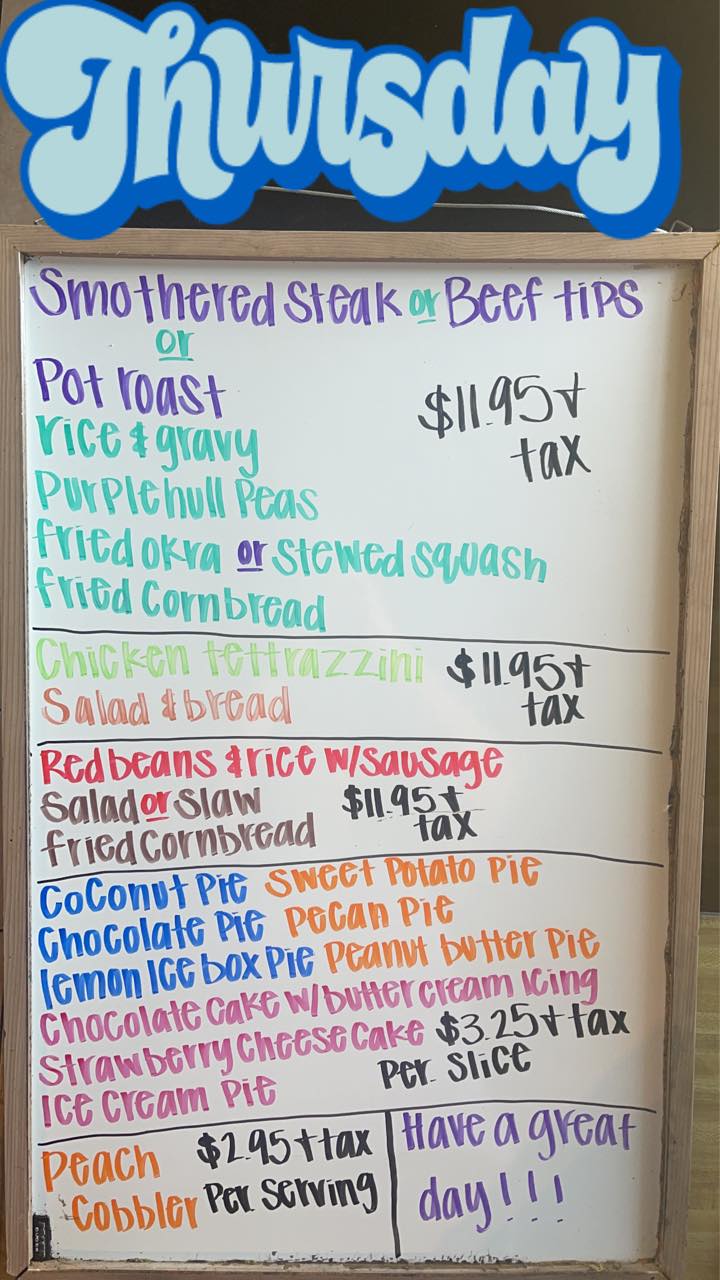 Thursday
Smothered Steak or Beef tips
or
Pot roast
$11.95+
tax
rice & gravy
Purplehull Peas
fried okra or Stewed squash
fried Cornbread
Chicken tettrazzini $11.95+
tax
Salad & bread
Red beans & rice w/sausage
Salad or Slaw $11.95+
tax
fried Cornbread
Coconut Pie Sweet Potato Pie
Chocolate Pie Pecan Pie
lemon Ice box Pie Peanut butter Pie
Chocolate Cake w/butter cream Icing
Strawberry Cheese Cake $3.25+tax
Per Slice
Ice Cream Pie
Peach $2.95+tax
Cobbler Per Serving
Have a great
day!!!